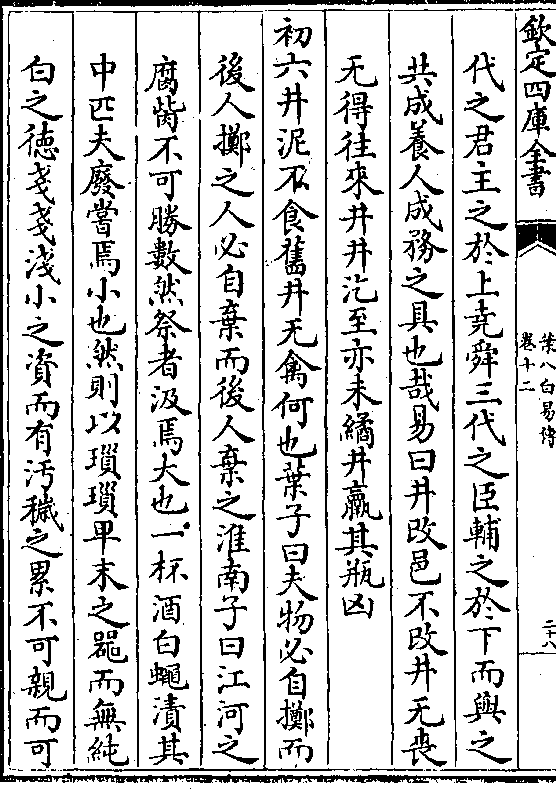 欽定四庫全書
葉八白易傳
卷十二
二十八
代之君主之於上堯舜三代之臣輔之於下而與之
共成養人成務之具也哉易曰井改邑不改井无喪
无得往來井井汔至亦未繘井羸其瓶凶
初六井泥不食舊井无禽何也葉子曰夫物必自擲而
後人擲之人必自棄而後人棄之淮南子曰江河之
腐胔不可勝數然祭者汲焉大也一杯酒白蠅漬其
中匹夫廢嘗焉小也然則以瑣瑣卑末之器而無純
白之徳戔戔淺小之資而有汚穢之累不可親而可